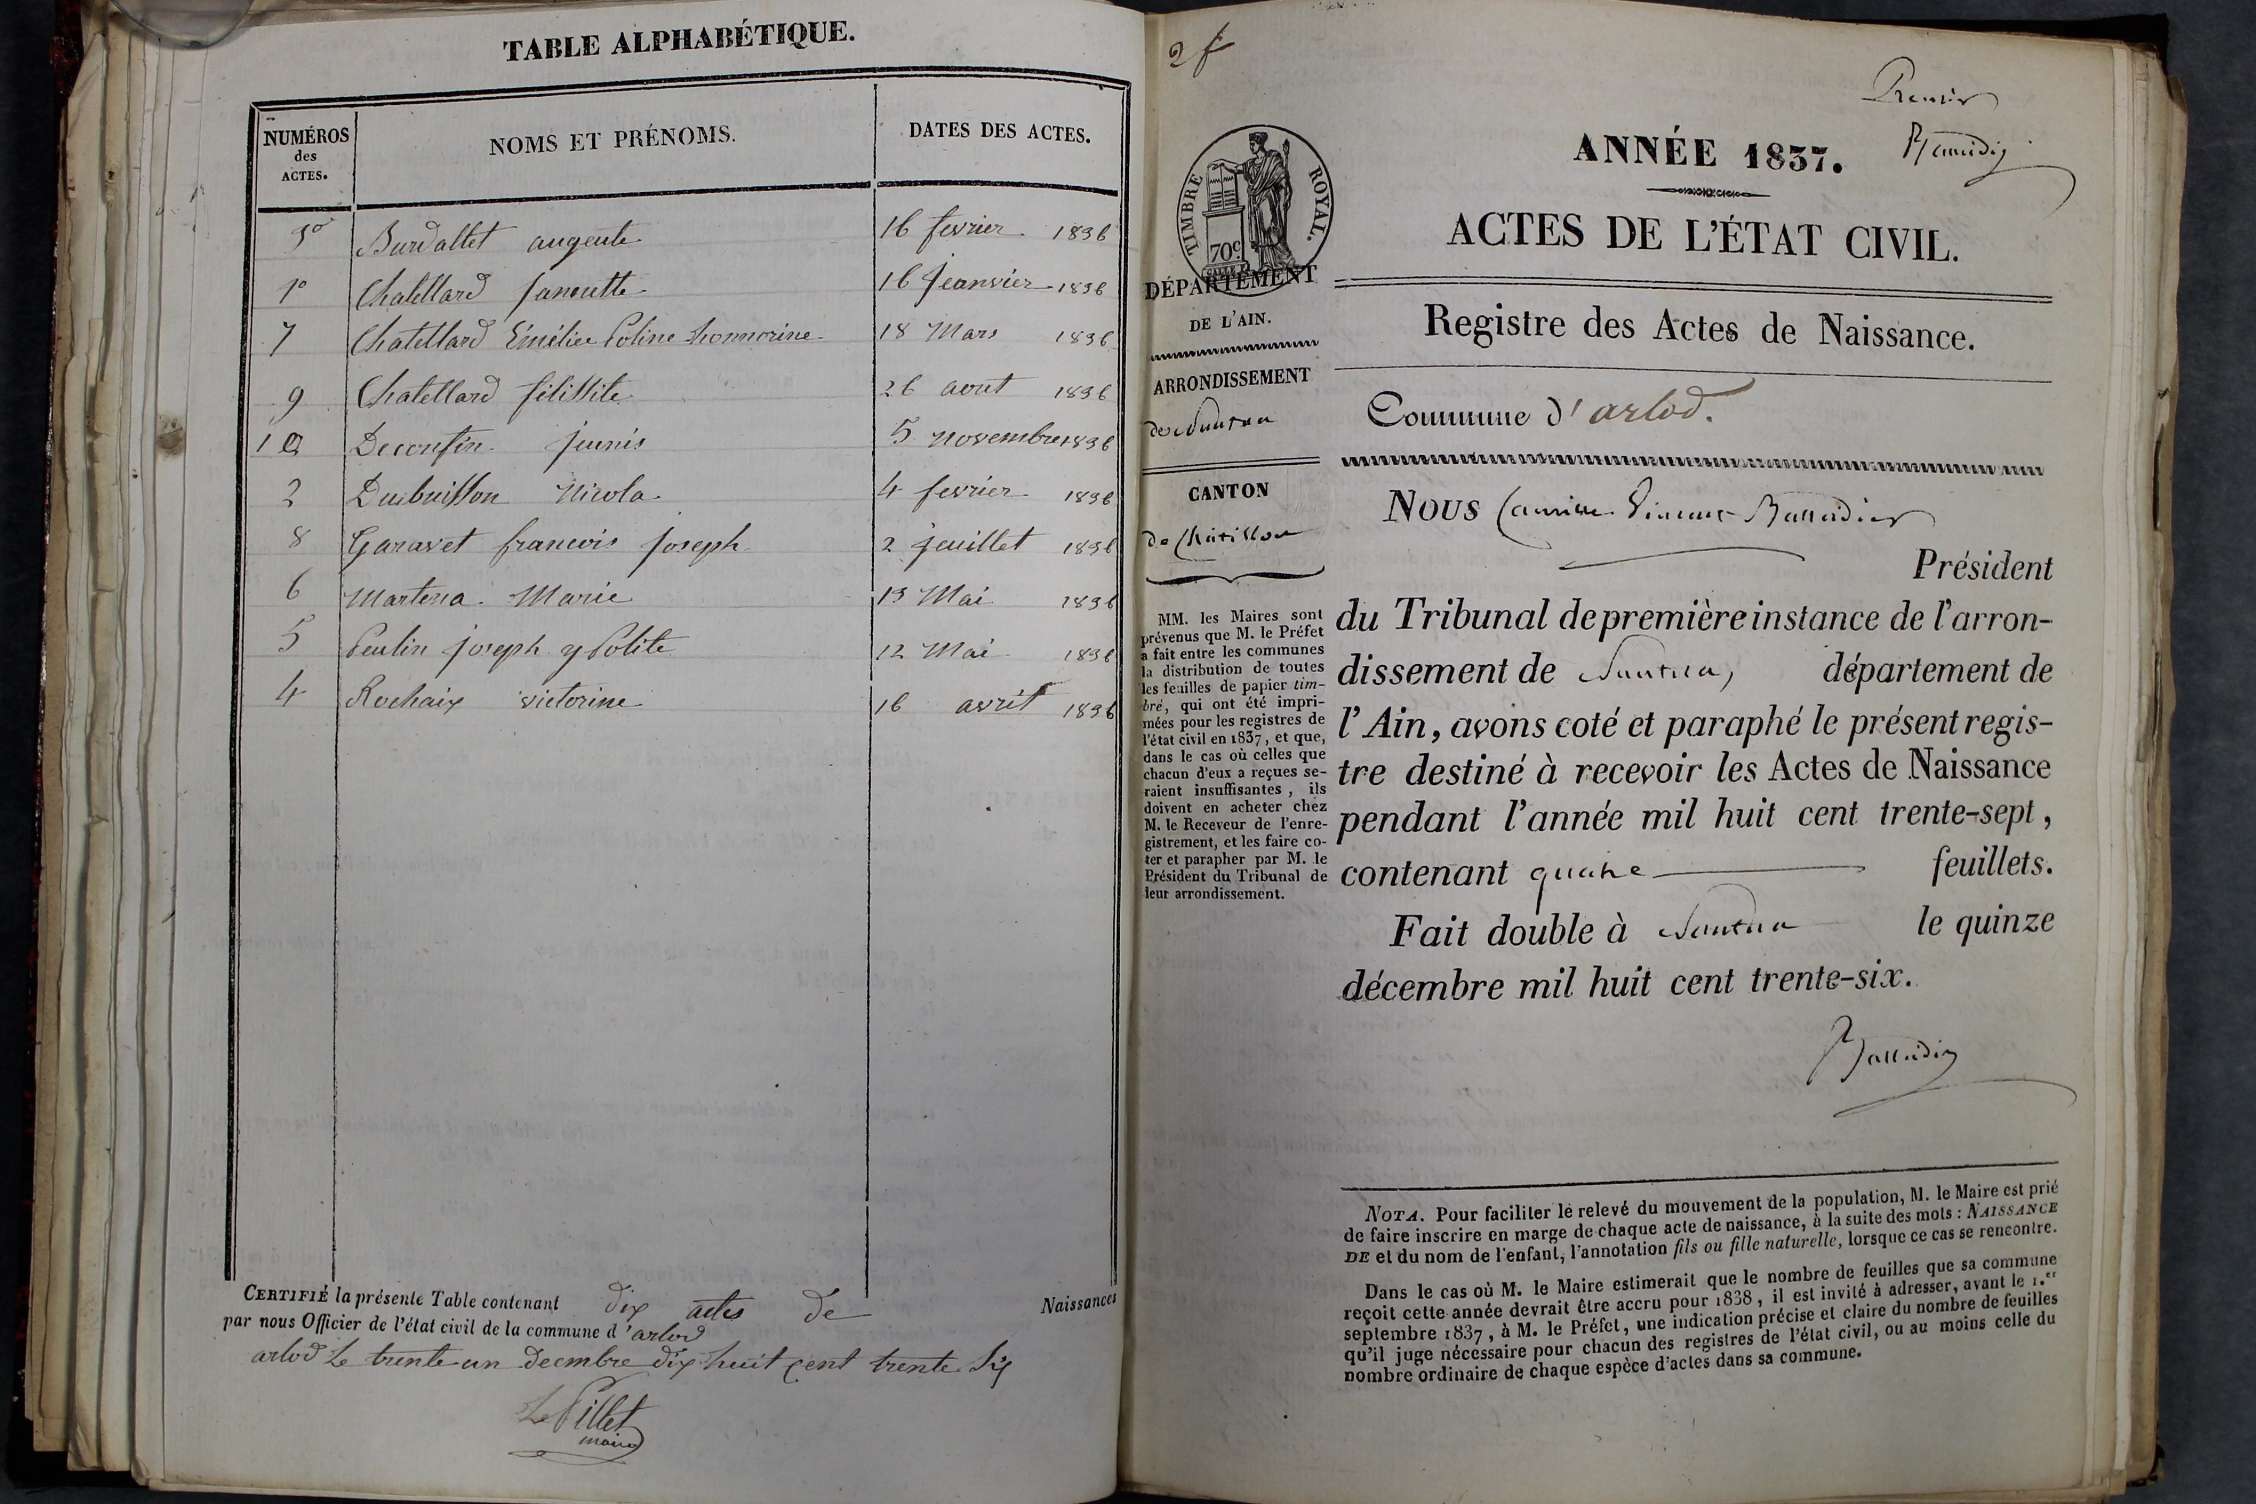 TABLE ALPHABÉTIQUE.
NUMÉROS des ACTES. NOMS ET PRÉNOMS. DATES DES ACTES.
3° Burdallet augente 16 fevrier 1836
1° Chatellard fanoutte 16 jeanvier 1836
7 Chatellard Emélie Poline honnorine 18 Mars 1836
9 Chatellard felissite 26 aout 1836
10 Deconfin junis 5 novembre 1836
2 Dubuisson Nicola 4 fevrier 1836
8 Garavet francois joseph 2 jeuillet 1836
6 Marie 13 Mai 1836
5 joseph ypolite 12 Mai 1836
4 Rochaix victorine 16 avril 1836
CERTIFIÉ la présente Table contenant dix actes de Naissances
par nous Officier de l'état civil de la commune d'arlod
arlod Le trente un decmbre dix huit cent trente Six
Pillet
maire
2 f
Premier
ANNÉE 1837.
ACTES DE L'ÉTAT CIVIL.
Registre des Actes de Naissance.
Commune d'arlod.
TIMBRE ROYAL.
70c
DÉPARTEMENT
DE L'AIN.
ARRONDISSEMENT
de Nantua
CANTON
de Châtillon
MM. les Maires sont
prévenus que M. le Préfet
a fait entre les communes
la distribution de toutes
les feuilles de papier tim-
bré, qui ont été impri-
mées pour les registres de
l'état civil en 1837, et que,
dans le cas où celles que
chacun d'eux a reçues se-
raient insuffisantes, ils
doivent en acheter chez
M. le Receveur de l'enre-
gistrement, et les faire co-
ter et parapher par M. le
Président du Tribunal de
leur arrondissement.
NOUS
Président
du Tribunal de première instance de l'arron-
dissement de Nantua, département de
l'Ain, avons coté et paraphé le présent regis-
tre destiné à recevoir les Actes de Naissance
pendant l'année mil huit cent trente-sept,
contenant quatre feuillets.
Fait double à Nantua le quinze
décembre mil huit cent trente-six.
NOTA. Pour faciliter le relevé du mouvement de la population, M. le Maire est prié
de faire inscrire en marge de chaque acte de naissance, à la suite des mots : NAISSANCE
DE et du nom de l'enfant, l'annotation fils ou fille naturelle, lorsque ce cas se rencontre.
Dans le cas où M. le Maire estimerait que le nombre de feuilles que sa commune
reçoit cette année devrait être accru pour 1838, il est invité à adresser, avant le 1.er
septembre 1837, à M. le Préfet, une indication précise et claire du nombre de feuilles
qu'il juge nécessaire pour chacun des registres de l'état civil, ou au moins celle du
nombre ordinaire de chaque espèce d'actes dans sa commune.